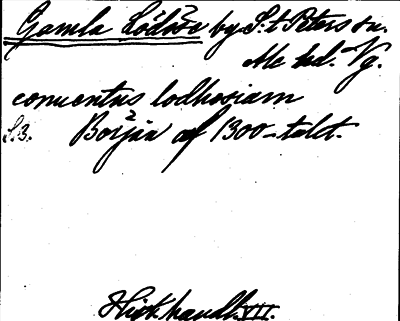 Gamla Lödöse by S:t Peters sn.
Ale hd. Vg.
conuentus lodhosiam
S.3. Början af 1300-talet.
Hist. handl. VII.